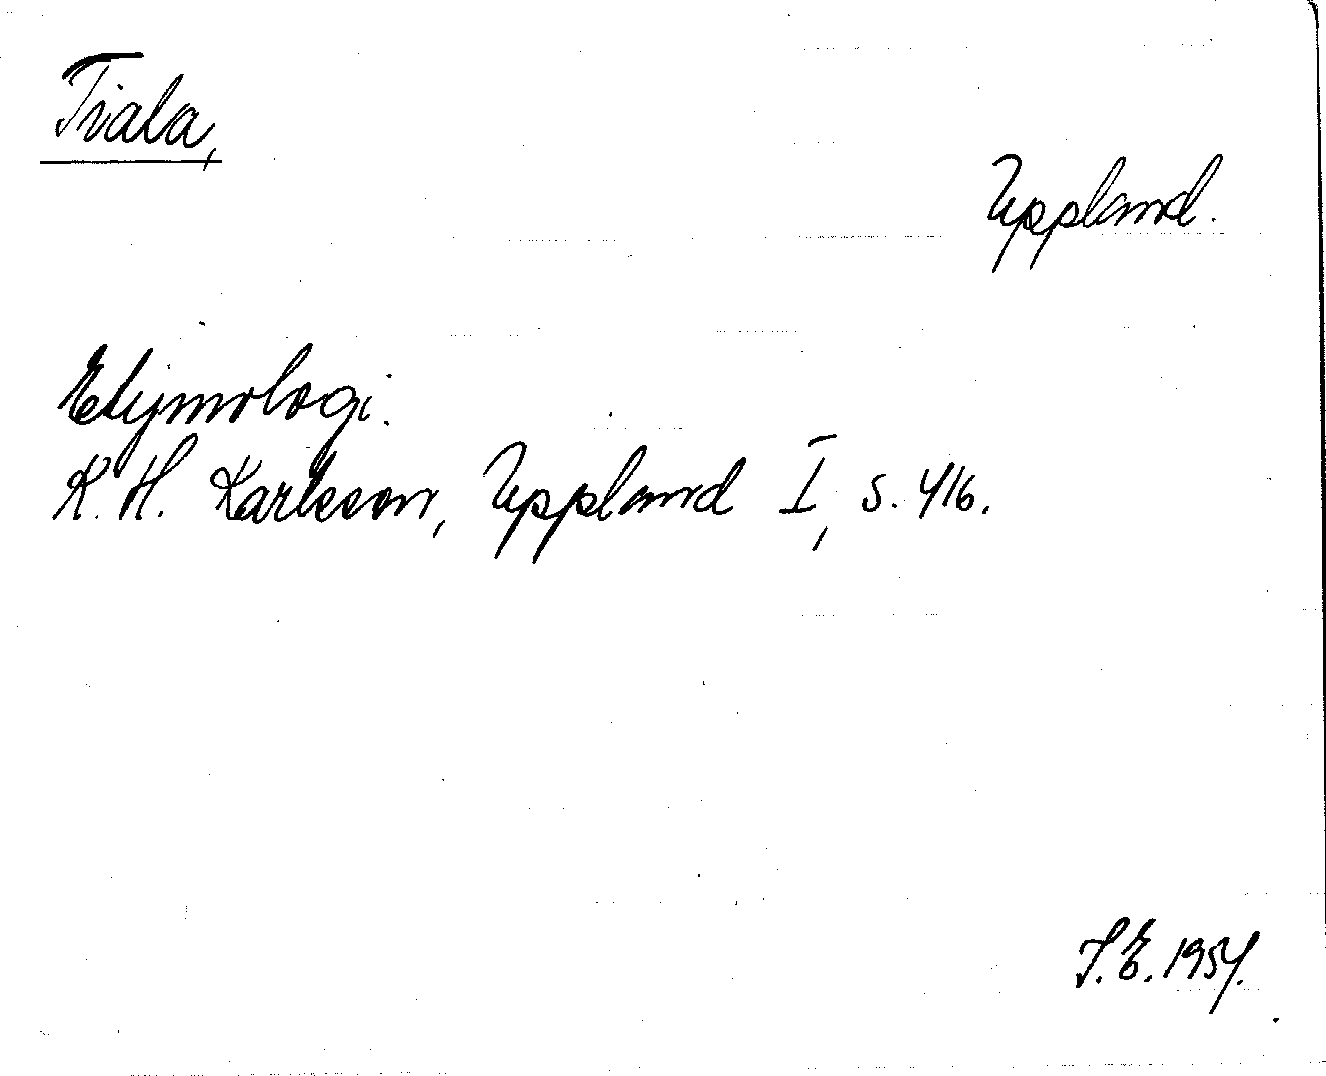 Tiala,
Uppland.
Etymologi.
K. H. Karlsson, Uppland I, s. 416.
J. E. 1954.